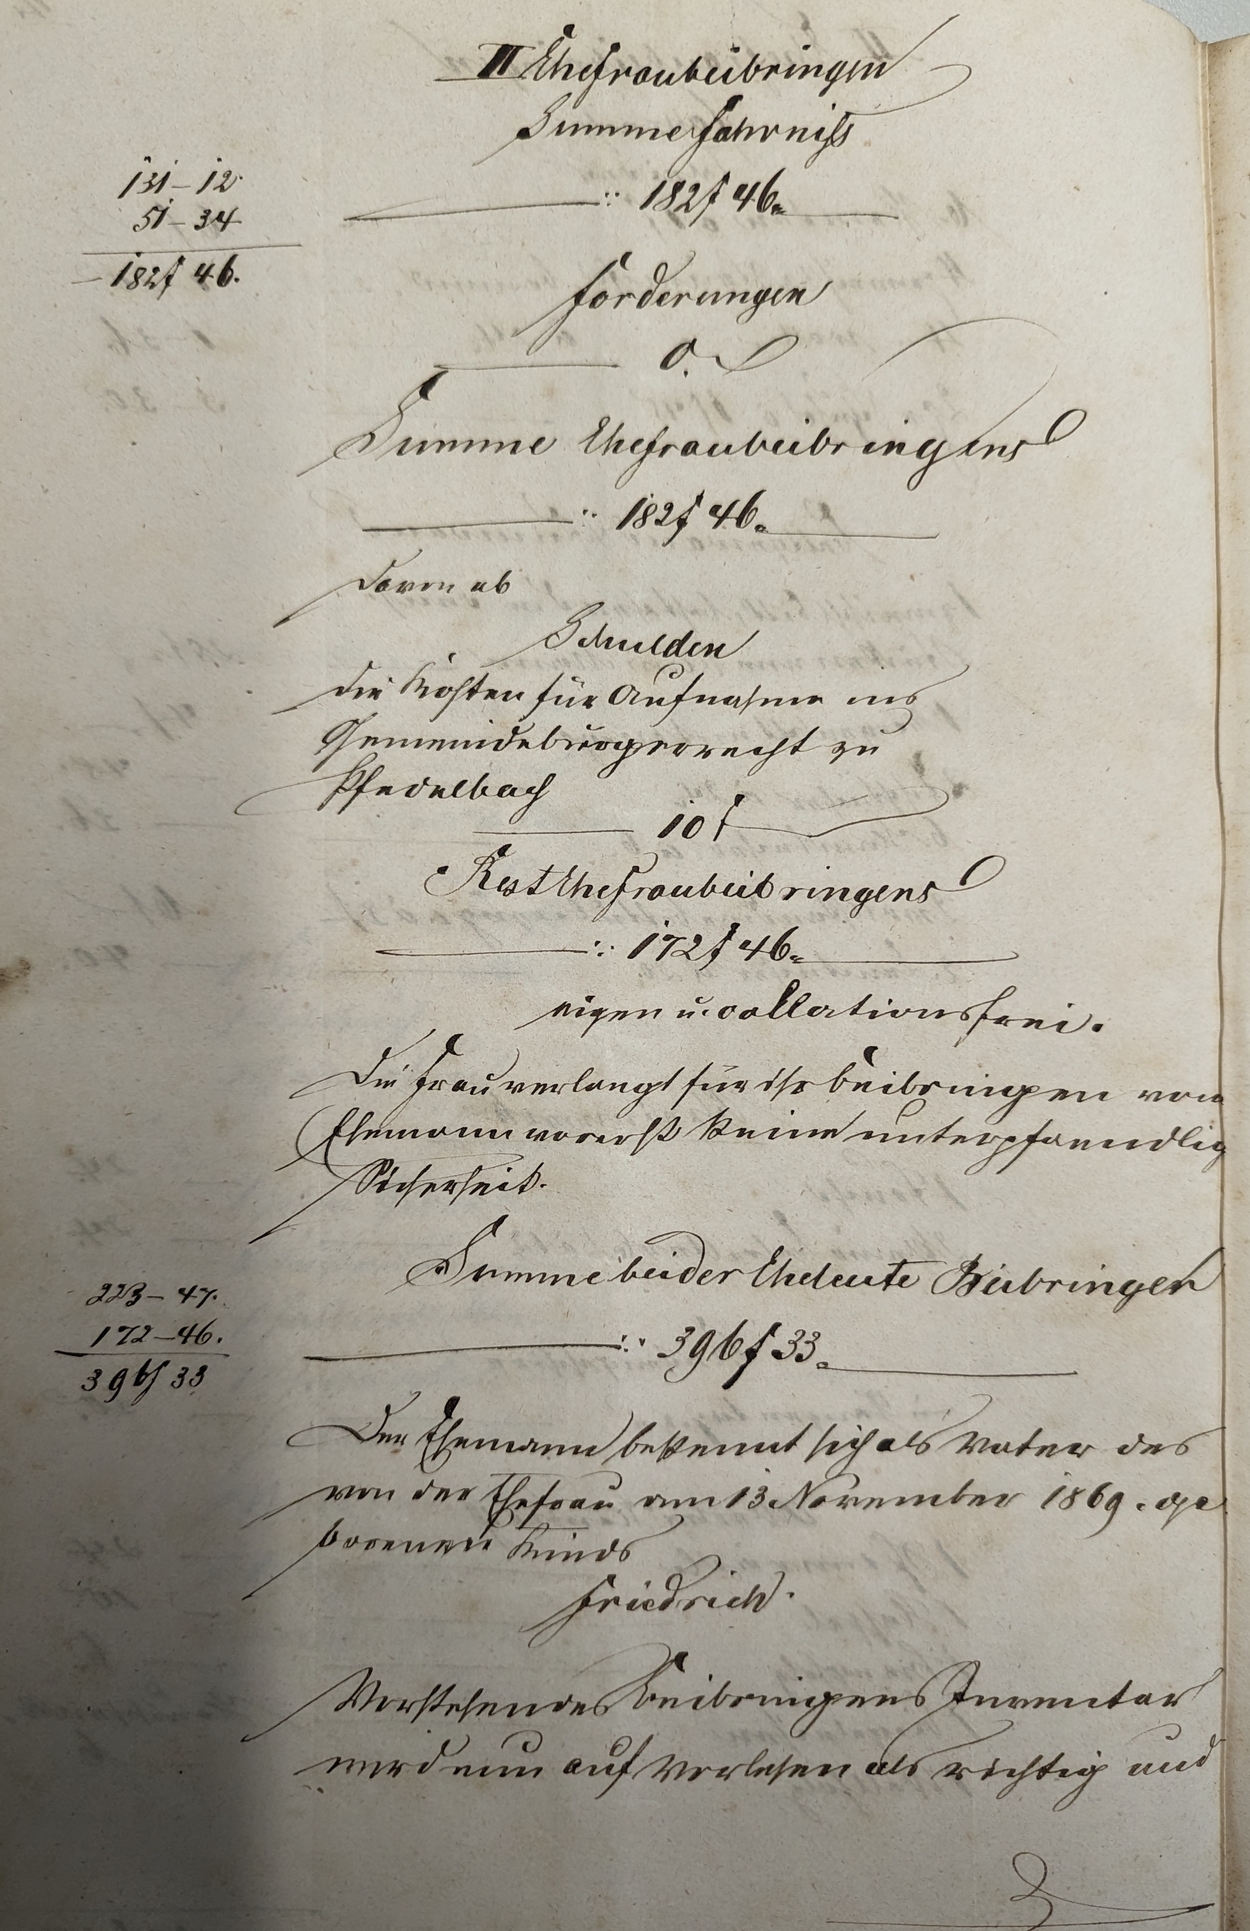 II Ehefraubeibringen
Summe Fahrniß
131 – 12.
51 – 34
182f 46.
∴ 182f 46.
Forderungen
0.
Summe Ehefraubeibringens
∴ 182f 46.
Davon ab
Schulden
die Kosten für Aufnahme ins
Gemeindebürgerrecht zu
Pfedelbach
10 f
Rest Ehefraubeibringens
∴ 172f 46.
eigen u. collationsfrei.
Die Frau verlangt für ihr Beibringen vom
Ehemann vorerst keine unterpfaendlich
Sicherheit.
Summe beider Eheleute Beibringen
223 – 47.
172 – 46.
396f 33
∴ 396f 33.
Der Ehemann bekennt sich als Vater des
von der Ehefrau am 13 November 1869. ge
borenen Kinds
Friedrich.
Vorstehendes Beibringens Inventar
wird nun auf Vorlesen als richtig und